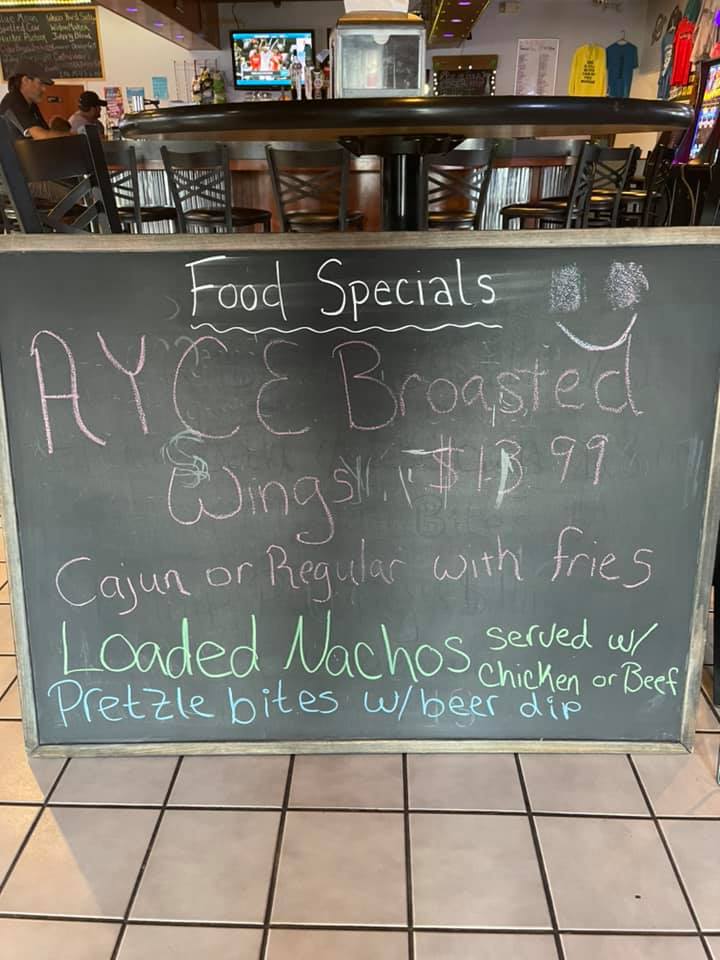 Food Specials
AYCE Broasted
Wings $13.99
Cajun or Regular with fries
Loaded Nachos served w/
Chicken or Beef
Pretzle bites w/beer dip